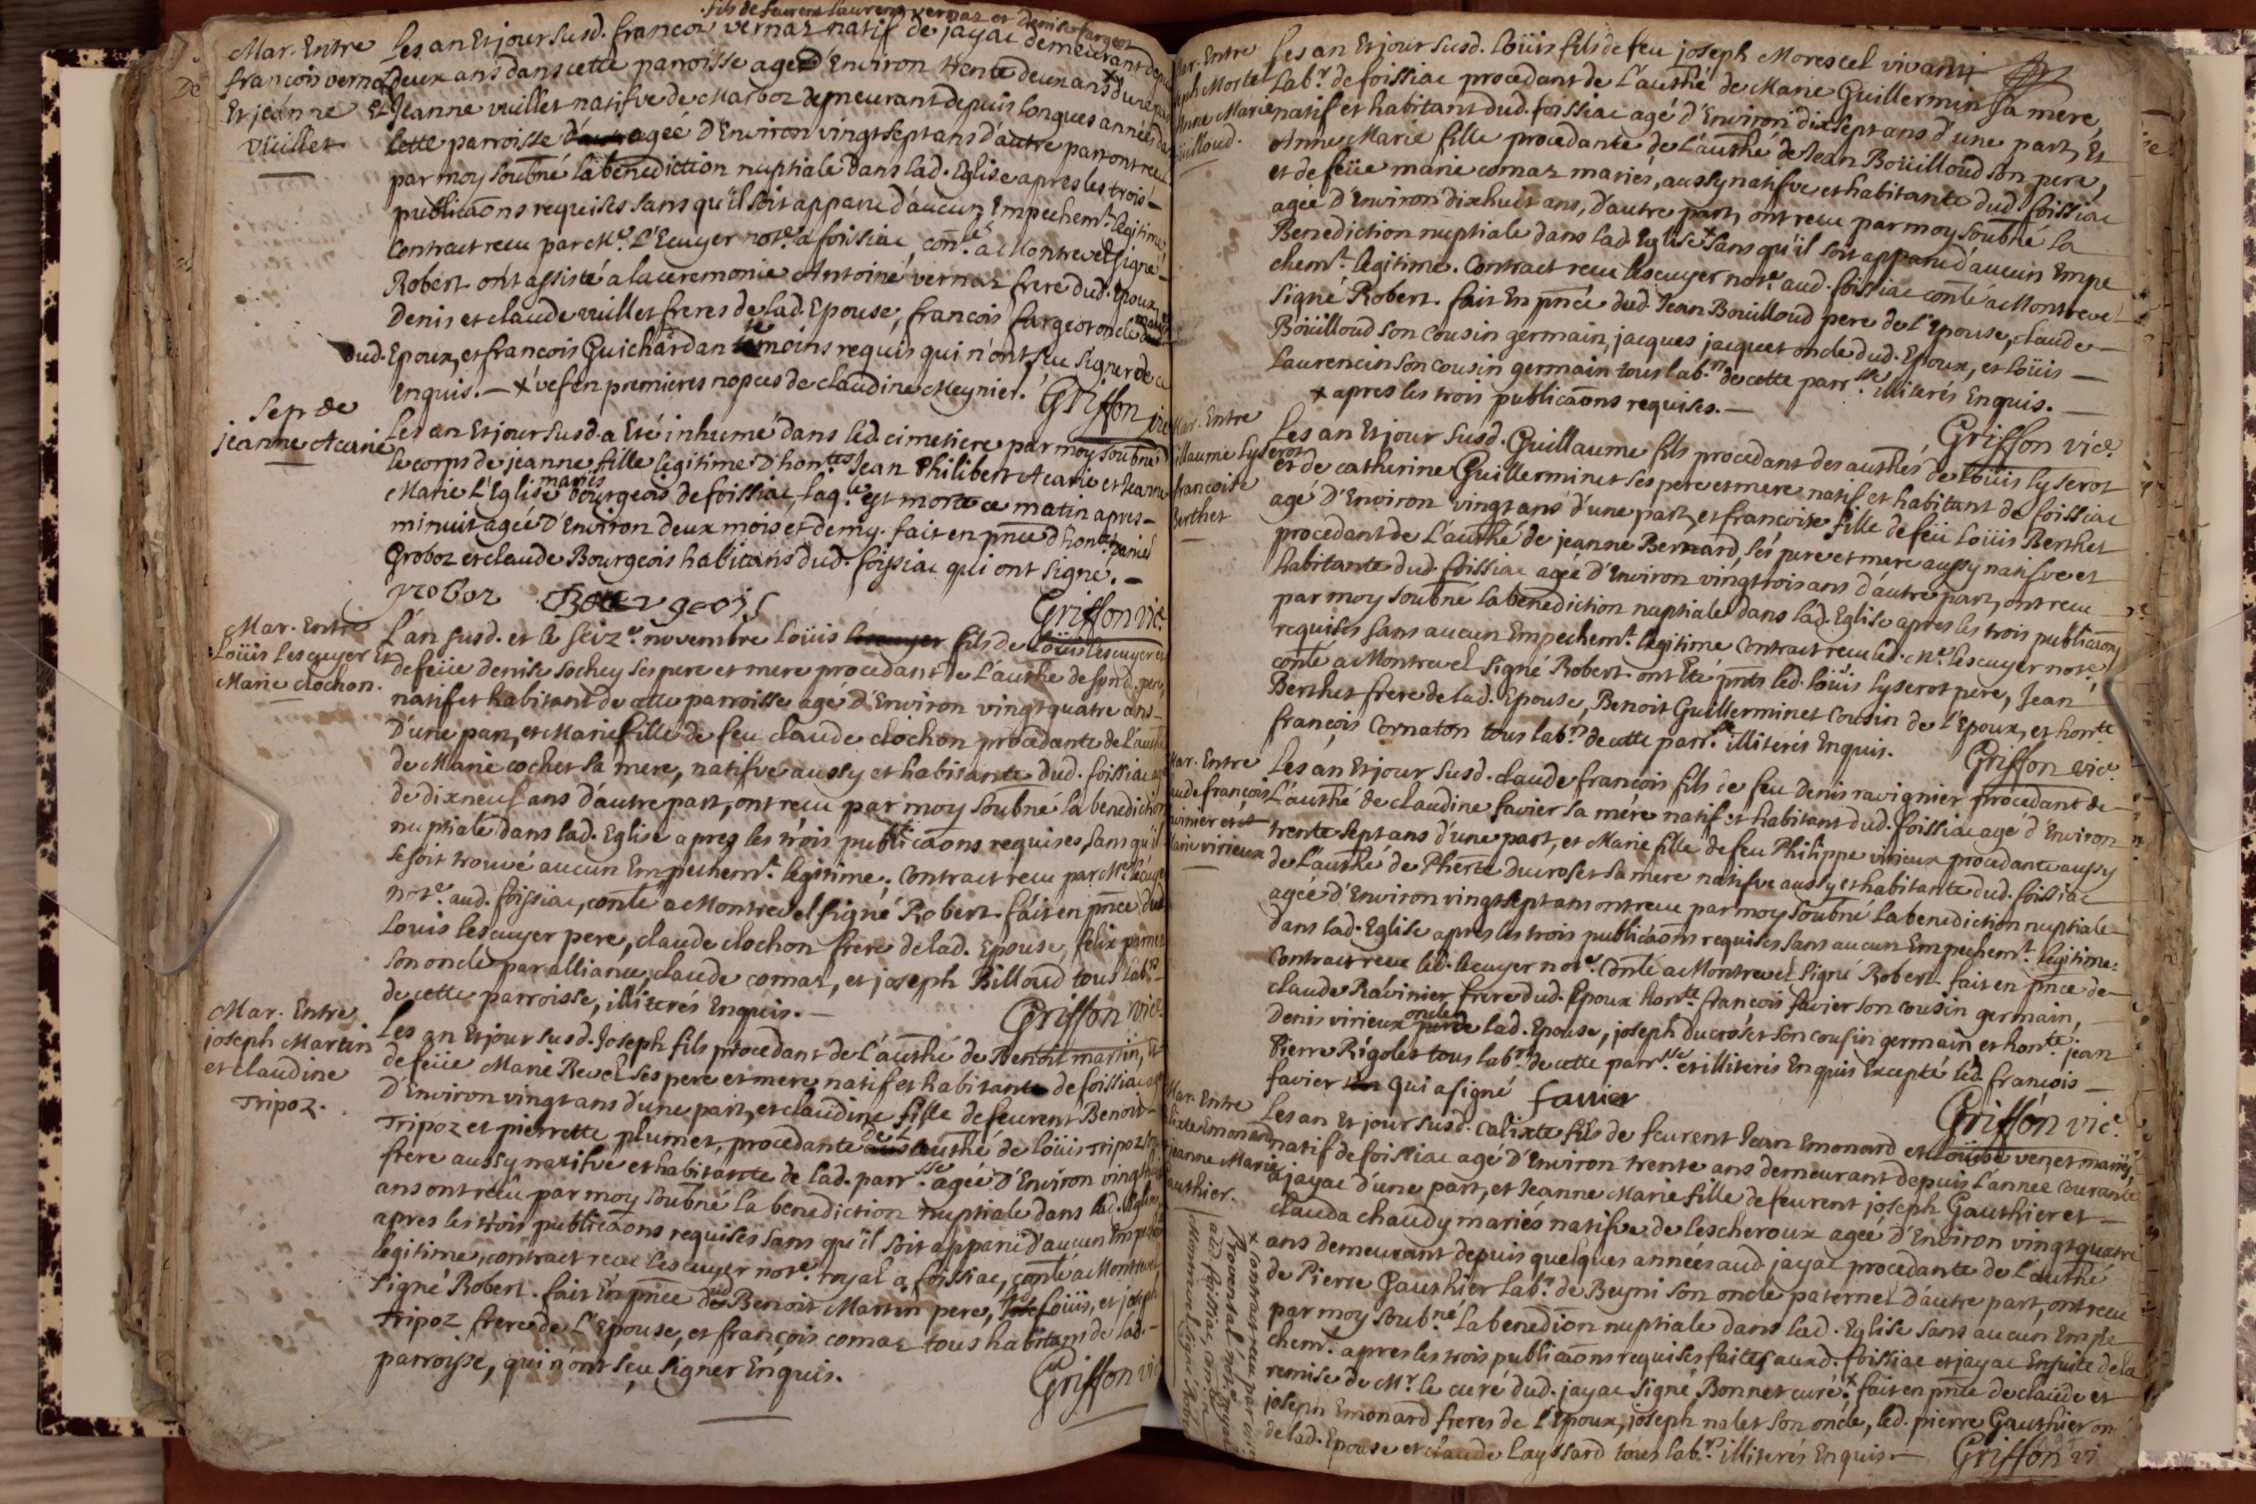 fils de feurent laurent vernaz et Denise fargeot
Mar. Entre
francois vernaz
Et jeanne
vuillet
Les an Et jour susd. francois vernaz natif de jayac demeurant depuis
deux ans dans cette parroisse agé d'Environ trente deux ans x d'une part
Et Jeanne vuillet natifve de Marboz demeurant depuis longues années dans
cette parroisse agée d'Environ vingt sept ans d'autre part ont receu
par moy soubné la benediction nuptiale dans lad. Eglise apres les trois
publicaõns requises sans qu'il soit apparu d'aucun Empechemt. legitime
Contract receu par Me. L'Ecuyer notre. a foissiac, conlé. a Montrevel signé
Robert ont assisté a la ceremonie Antoine vernaz frere dud. Epoux,
Denis et claude vuillet freres de lad. Epouse, francois fargeot oncle
dud. Epoux, et francois Guichardan temoins requis qui n'ont sçu signer de ce
Enquis. — x vef en premieres nopces de claudine Meynier. Griffon vic
Sep de
jeanne Acarie
Les an Et jour susd. a Eté inhumé dans led. cimetiere par moy soubné
le corps de jeanne fille legitime d'hontes. Jean Philibert Acarie et Jeanne
Marie L'Eglise mariés bourgeois de foissiac, laqle. est morte ce matin apres
minuit agée d'Environ deux mois et demy. fait en pnce d'honte. Daniel
Groboz et claude Bourgeois habitans dud. foissiac qui ont signé. —
groboz Bourgeois
Griffon vice.
Mar. Entre
Loüis lescuyer Et
Marie clochon.
L'an susd. et le seize. novembre loüis fils de loüis lescuyer et
defeüe denise sochey ses pere et mere procedant de L'authé de sond. pere,
natif et habitant de cette parroisse agé d'Environ vingt quatre ans
D'une part, et Marie fille de feu claude clochon procedante de l'authé
de Marie cochet sa mere, natifve aussy et habitante dud. foissiac agée
de dix neuf ans d'autre part, ont receu par moy soubné la benediction
nuptiale dans lad. Eglise apres les trois publicaõns requises, sans qu'il
se soit trouvé aucun Empechemt. legitime. Contract receu par Me. lescuyer
notre. aud. foissiac, conlé a Montrevel signé Robert. fait en pnce dud.
Louis lescuyer pere, claude clochon frere de lad. Epouse, felix
son oncle par alliance, claude comaz, et joseph Billoud tous labrs.
de cette parroisse, illiterés Enquis. —
Griffon vice.
Mar. Entre
joseph Martin
et claudine
Tripoz.
Les an Et jour susd. Joseph fils procedant de L'authé de Benoit martin, Et
defeüe Marie Revel ses pere et mere natif et habitant de foissiac agé
D'Environ vingt ans d'une part, et claudine fille defeurent Benoit
Tripoz et pierrette plumet, procedante de L'authé de loüis Tripoz son
frere aussy natifve et habitante de lad. parrsse. agée d'Environ vingt
ans ont reçu par moy soubné la benediction nuptiale dans lad. Eglise
apres les trois publicaõns requises sans qu'il soit apparu d'aucun Empechemt
legitime, contract receu lescuyer notre. royal a foissiac, conlé a Montrevel
signé Robert. fait En pnce dud Benoit Martin pere, loüis, et joseph
Tripoz freres de L'Epouse, et françois comaz tous habitans de lad.
parroisse, qui n'ont sçeu signer Enquis.
Griffon vic
Mar. Entre
joseph Morle
Anne Marie
boüilloud.
Les an Et jour susd. loüis fils de feu joseph Morescel vivant
Labr. de foissiac procedant de L'authé de Marie Guillermin sa mere,
natif et habitant dud. foissiac agé d'Environ dix sept ans d'une part, Et
Anne Marie fille procedante de L'authé de Jean Boüilloud son pere,
et defeüe marie comaz mariés, aussy natifve et habitante dud. foissiac
agée d'Environ dix huit ans, D'autre part, ont receu par moy soubné la
Benediction nuptiale dans lad. Eglise x sans qu'il soit apparu d'aucun Empe
chemt. legitime. Contract receu lescuyer notre. aud. foissiac conlé a Montrevel
signé Robert. fait En pnce dud. Jean Boüilloud pere de l'Epouse, claude
Boüilloud son cousin germain, jacques jacquet oncle dud. Epoux, et loüis
Laurencin son cousin germain tous labrs. de cette parrsse. illiterés Enquis.
x apres les trois publicaõns requises. —
Griffon vice.
Mar. Entre
Guillaume Lyserot
francoise
Berthet
Les an Et jour susd. Guillaume fils procedant des authés de loüis Lyserot
et de catherine Guillerminet ses pere et mere natif et habitant de foissiac
agé D'Environ vingt ans d'une part, et françoise fille defeü Loüis Berthet
procedant de L'authé de jeanne Bernard, ses pere et mere aussy natifve et
habitante dud. foissiac agée D'Environ vingt trois ans d'autre part, ont receu
par moy soubné la benediction nuptiale dans lad. Eglise apres les trois publicaõns
requises sans aucun Empechemt. legitime contract receu led. Me. lescuyer notre.
conlé a Montrevel signé Robert. ont Eté pnts led. loüis Lyserot pere, Jean
Berthet frere de lad. Epouse, Benoit Guillerminet cousin de l'Epoux, et honte.
françois Cornaton tous labrs. de cette parrsse. illiterés Enquis.
Griffon vice.
Mar. Entre
claude françois
Ravinier et
Marie virieux
Les an Et jour susd. claude francois fils de feu Denis ravignier procedant de
L'authé de claudine favier sa mére natif et habitant dud. foissiac agé d'Environ
trente sept ans d'une part, et Marie fille de feu Philippe virieux procedante aussy
de L'authé de Phérte Ducroset sa mere natifve aussy et habitante dud. foissiac
agée d'Environ vingt sept ans ont receu par moy soubné la benediction nuptiale
dans lad. Eglise apres les trois publicaõns requises sans aucun Empechemt. legitime.
Contract receu led. lecuyer notre. Conlé a Montrevel signé Robert. fait en pnce de
claude Ravinier frere dud. Epoux honte. françois favier son cousin germain,
Denis virieux oncle de lad. Epouse, joseph ducroset son cousin germain et honte. jean
Pierre Rigolet tous labrs. de cette parrsse. et illiterés Enquis Excepté led. françois
favier qui a signé favier
Griffon vice.
Mar. Entre
calixte Emonard
jeanne Marie
Gauthier.
Les an Et jour susd. calixte fils de feurent Jean Emonard et Loüise venet mariés,
natif de foissiac agé D'Environ trente ans demeurant depuis L'année courante
a jayac d'une part, et Jeanne Marie fille defeurent joseph Gauthier et
clauda chaudy mariés natifve de lescheroux agée d'Environ vingt quatre
ans demeurant depuis quelques années aud. jayac procedante de L'authé
de Pierre Gauthier labr. de Beyni son oncle paternel D'autre part, ont receu
par moy soubné. la benedion nuptiale dans lad. Eglise sans aucun Empe
chemt. apres les trois publicaõns requises faites auxd. foissiac et jayac Ensuite de la
remise de Mr. le curé dud. jayac signé Bonnet curé. x fait en pnce de claude et
joseph Emonard freres de l'Epoux, joseph nalet son oncle, led. pierre Gauthier on
de lad. Epouse et claude Layssard tous labrs. illiterés Enquis. —
Griffon vi
x Contract receu par
Provental notre. royal
aud. foissiac, conlé a
Montrevel signé Robert